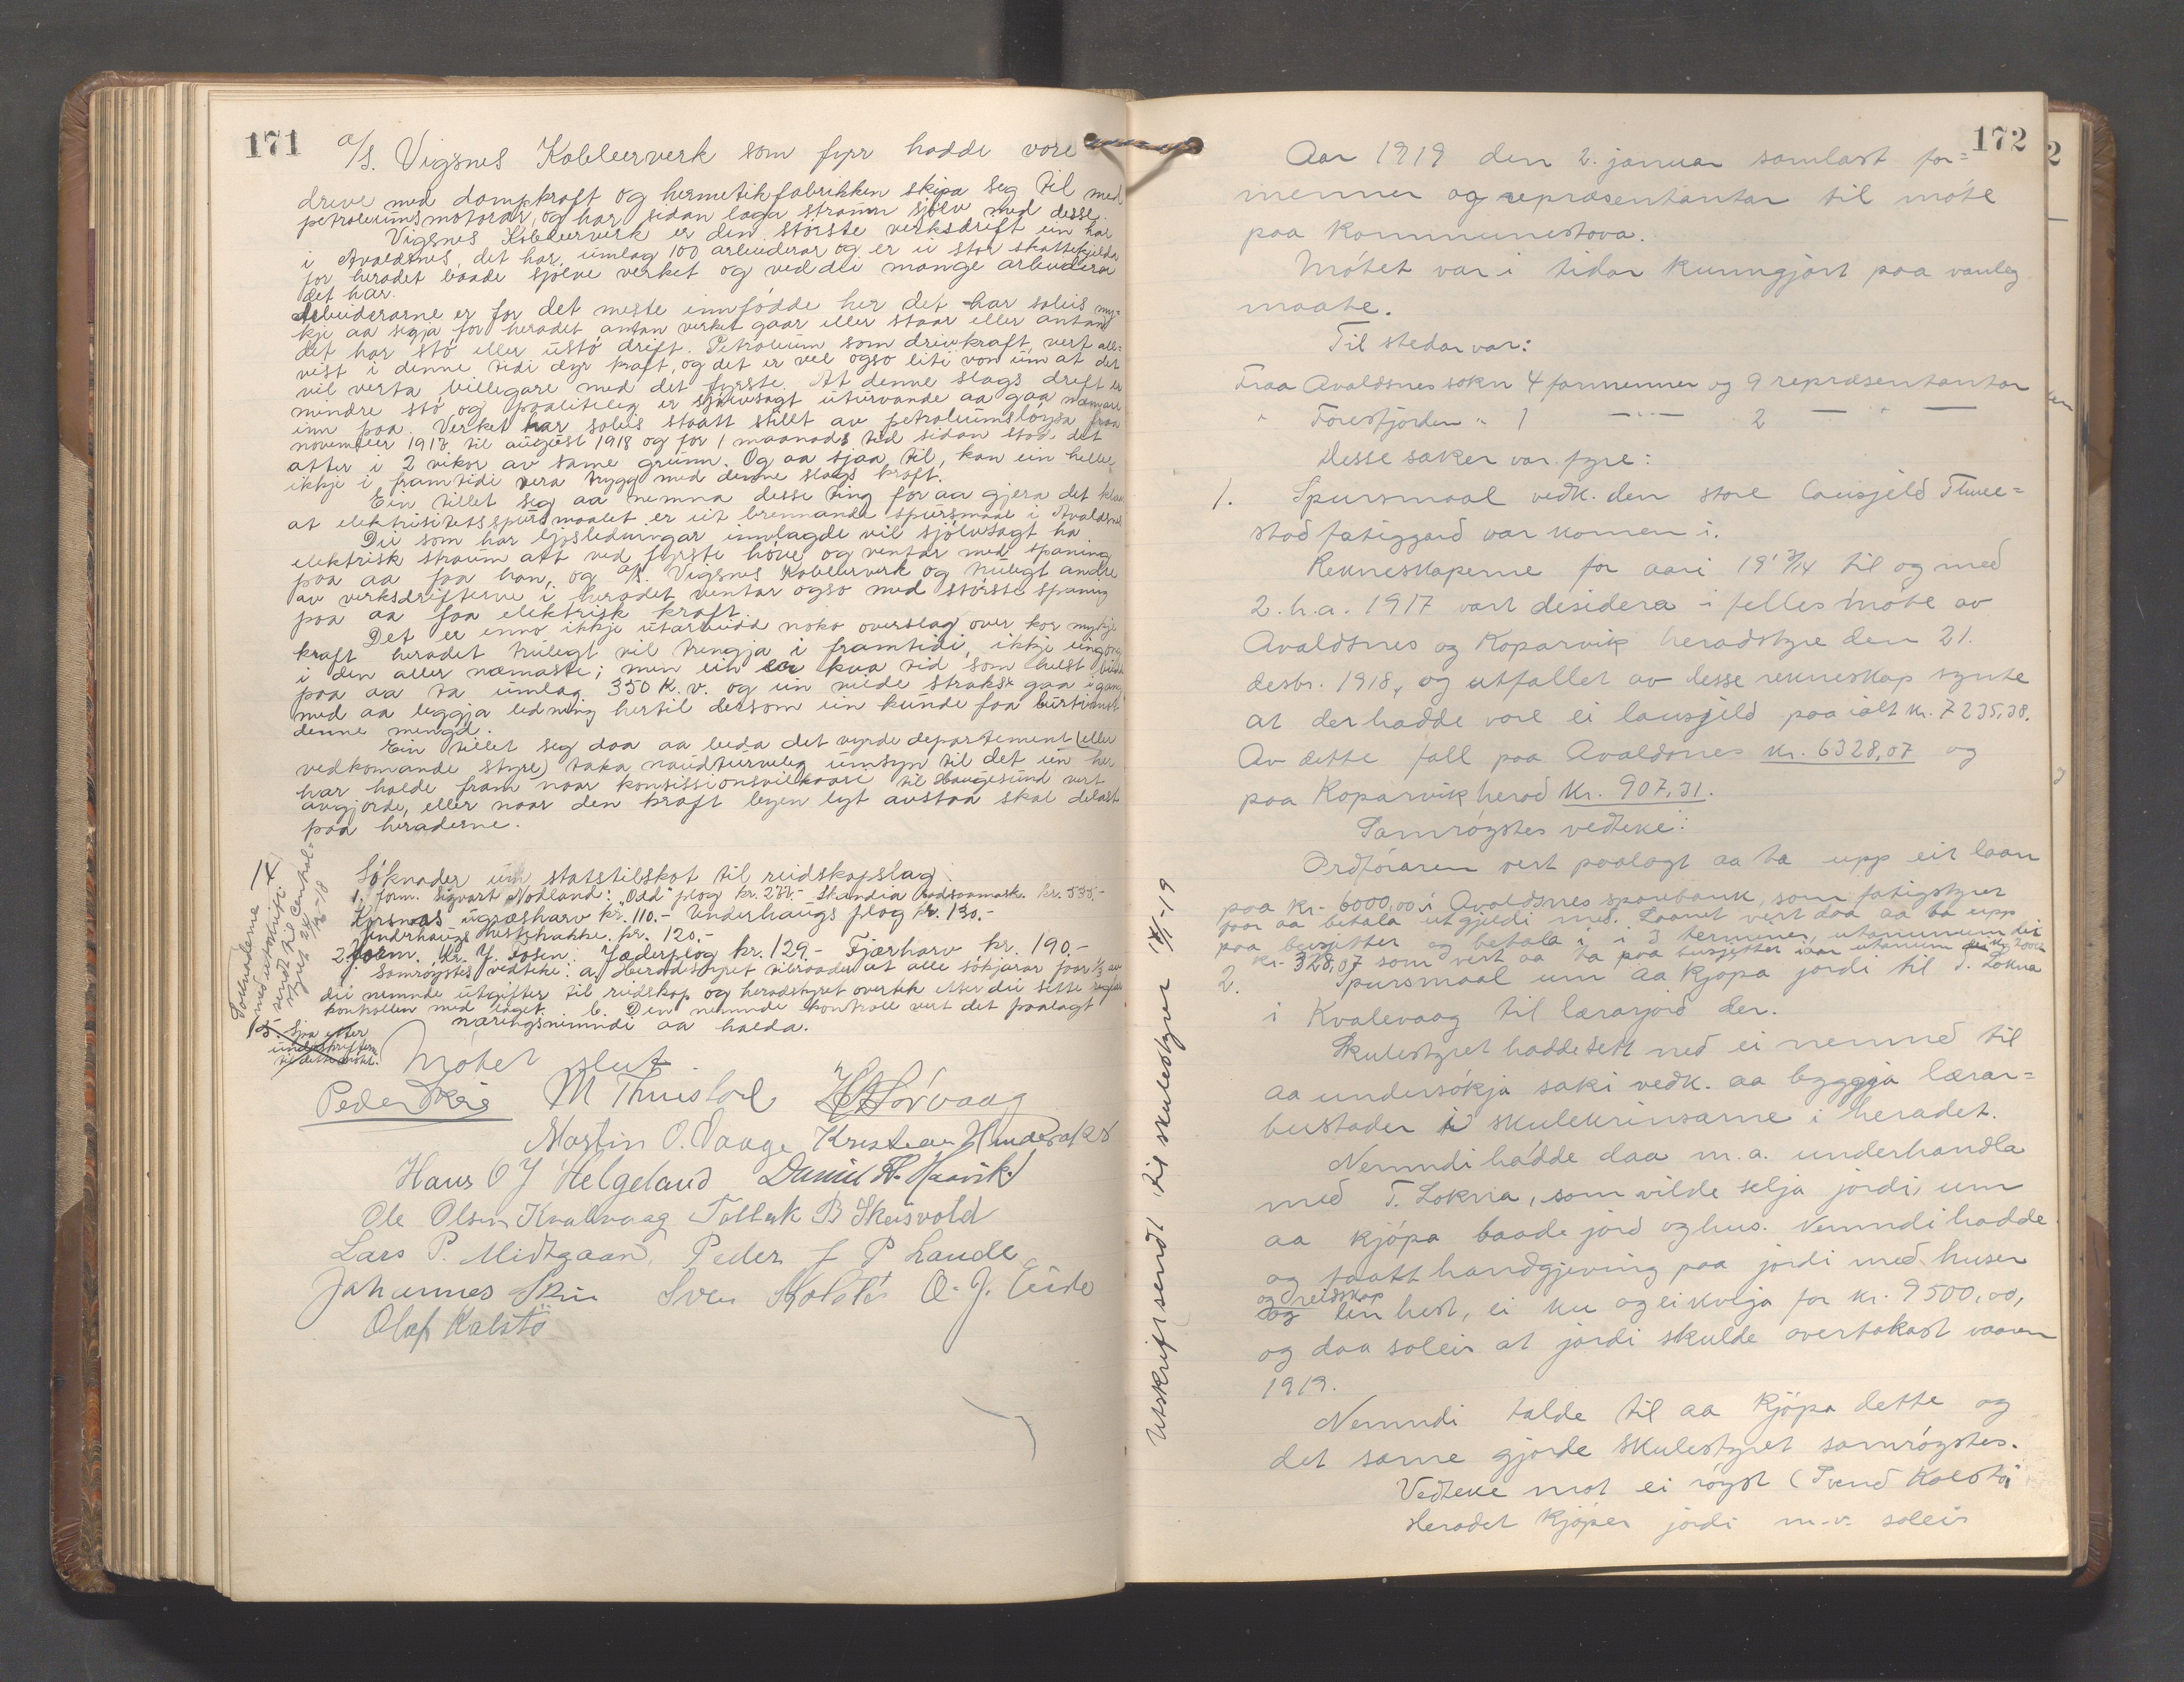 171
a/s. Vigsnes Kobberverk som fyrr hadde vore
drive med dampkraft og hermetikfabrikken skipa seg til med
petroleumsmotorar, og har sidan laga straum sjølv med desse.
Vigsnes Kobberverk er den største verksdrift ein har
i Avaldsnes, det har umlag 100 arbeiderar og er ei stor skattekjelda
for heradet baade sjølve verket og ved dei mange arbeidera
det har.
Arbeiderarne er for det meste innfødde her det har soleis my=
kje aa segja for heradet antan verket gaar eller staar eller antan
det har stø eller ustø drift. Petroleum som drivkraft vert all=
vist i denne tidi dyr kraft, og det er vel ogso liti von um at det
vil verta billegare med det fyrste. At denne slags drift er
mindre stø og paaliteleg er sjølvsagt uturvande aa gaa nærmare
inn paa. Verket har soleis staatt stilt av petroleumsløysa fraa
november 1917 til august 1918 og for 1 maanads tid sidan stod det
atter i 2 vikor av same grunn. Og aa sjaa til, kan ein heller
ikkje i framtidi vera trygg med denne slags kraft.
Ein tillet seg aa nemna desse ting for aa gjera det klart
at elektrisitetsspursmaalet er eit brennande spursmaal i Avaldsnes
Dei som har ljosledningar innlagde vil sjølvsagt ha
elektrisk straum att ved fyrste høve og ventar med spaning
paa aa faa han, og a/s. Vigsnes Kobberverk og trulegt andre
av verksdrifterne i heradet ventar ogso med største spaning
paa aa faa elektrisk kraft.
Det er enno ikkje utarbeidd noko overslag over kor mykje
kraft heradet truleg vil trengja i framtidi, ikkje eingong
i den aller næmaste; men ein er kva tid som helst
paa aa ta umlag 350 K.v. og ein vilde straks gaa igang
med aa leggja ledning hertil dersom ein kunde faa burtimot
denne mengd.
Ein tillet seg daa aa beda det vyrde departement (eller
vedkomande styre) taka naudturveleg umsyn til det ein her
har halde fram naar konsessionsvilkaari til Haugesund vert
avgjorde, eller naar den kraft byen lyt avstaa skal delast
paa heraderne.
14
Søknaderne
med utskrift
sendt til Central=
styret 24/12-18
Søknader um statstilskot til reidskapslag.
1, form. Sigvart Nodland: "Odd" plog kr. 277.- Skandia radsaamask. kr. 535.-
Kjosnaas ugræsharv kr. 110.- Underhaugs plog kr. 130.-
Underhaugs Hestehakke. kr. 120.-
2. form. Kr. Y. Fosen: Jæderplog kr. 129.- Fjærharv kr. 190.-
Samrøystes vedteke: a. Heradstyret tilraader at alle søkjarar faar 1/3 av
dei nemnde utgifter til reidskap og heradstyret overtek etter dei sette reglar
kontrollen med laget. b. Den nemnde kontroll vert det paalagt
næringsnemndi aa halda.
15. Sjaa etter
underskrifterne
til dette møtet.
Møtet slut
Peder Skre M Thuestad H. Sørvaag
Martin O. Vaage Kristian Hinderaker
Hans O J Helgeland Daniel H. Haavik
Ole Olsen Kvalevaag Tollak B Skeisvold
Lars P. Midtgaard, Peder J P Lande
Johannes Skeie Sven Kolstø O. J. Eide
Olaf Kalstø
172
Aar 1919 den 2. januar samlast for=
menner og repræsentantar til møte
paa Kommunestova.
Møtet var i tidar kunngjort paa vanleg
maate.
Til stedar var:
Fraa Avaldsnes sokn 4 formenner og 9 repræsentantar
" Førresfjorden " 1 —"— 2 — " —
Desse saker var fyre:
1. Spursmaal vedk. den store lausgjeld Thue=
stad fatiggard var komen i.
Rekneskaperne for aari 1913/14 til og med
2. h.a. 1917 vart desidera i fellesmøte av
Avaldsnes og Koparvik heradstyre den 21.
desbr. 1918, og utfallet av desse rekneskap synte
at der hadde vore ei lausgjeld paa ialt kr. 7235,38.
Av dette fall paa Avaldsnes kr. 6328,07 og
paa Koparvik herad kr. 907,31.
Samrøystes vedteke:
Ordføraren vert paalagt aa ta upp eit laan
paa kr. 6000,00 i Avaldsnes sparebank, som fatigstyret
faar aa betala utgjeldi med. Laanet vert daa aa ta upp
paa busjetter og betala i 3 terminer, utanum dei
kr. 328,07 som vert aa ta paa busjettet iaar utanum
2. Spursmaal um aa kjøpa jordi til T. Lokna
i Kvalevaag til lærarjord der.
Skulestyret hadde sett ned ei nemnd til
aa undersøkja saki vedk. aa byggja lærar=
bustader i skulekrinsarne i heradet.
Nemndi hadde daa m.a. underhandla
med T. Lokna, som vilde selja jordi, um
aa kjøpa baade jord og hus. Nemndi hadde
og faatt handgjeving paa jordi med huser
og reidskap
og ein hest, ei ku og ei kvige for kr. 9500,00,
og daa soleis at jordi skulde overtakast vaaren
1919.
Nemndi talde til aa kjøpa dette og
det same gjorde skulestyret samrøystes.
Vedteke mot ei røyst (Svend Kolstø)
Heradet kjøper jordi m.v. soleis
Utskrift sendt til skulestyret 14/1-19